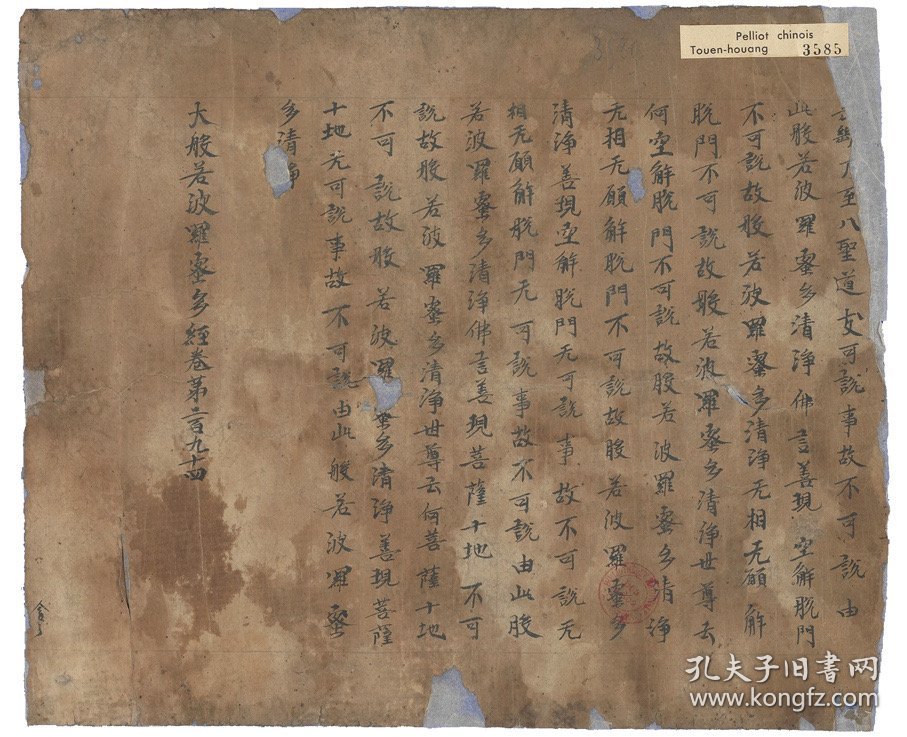 Pelliot chinois
Touen-houang 3585
乃至八聖道支可說事故不可說由
此般若波羅蜜多清淨佛言善現空解脫門
不可說故般若波羅蜜多清淨无相无願解
脫門不可說故般若波羅蜜多清淨世尊云
何空解脫門不可說故般若波羅蜜多清淨
无相无願解脫門不可說故般若波羅蜜多
清淨善現空解脫門无可說事故不可說无
相无願解脫門无可說事故不可說由此般
若波羅蜜多清淨佛言善現菩薩十地不可
說故般若波羅蜜多清淨世尊云何菩薩十地
不可說故般若波羅蜜多清淨善現菩薩
十地无可說事故不可說由此般若波羅蜜
多清淨
大般若波羅蜜多經卷第二百九十四
孔夫子旧书网
www.kongfz.com